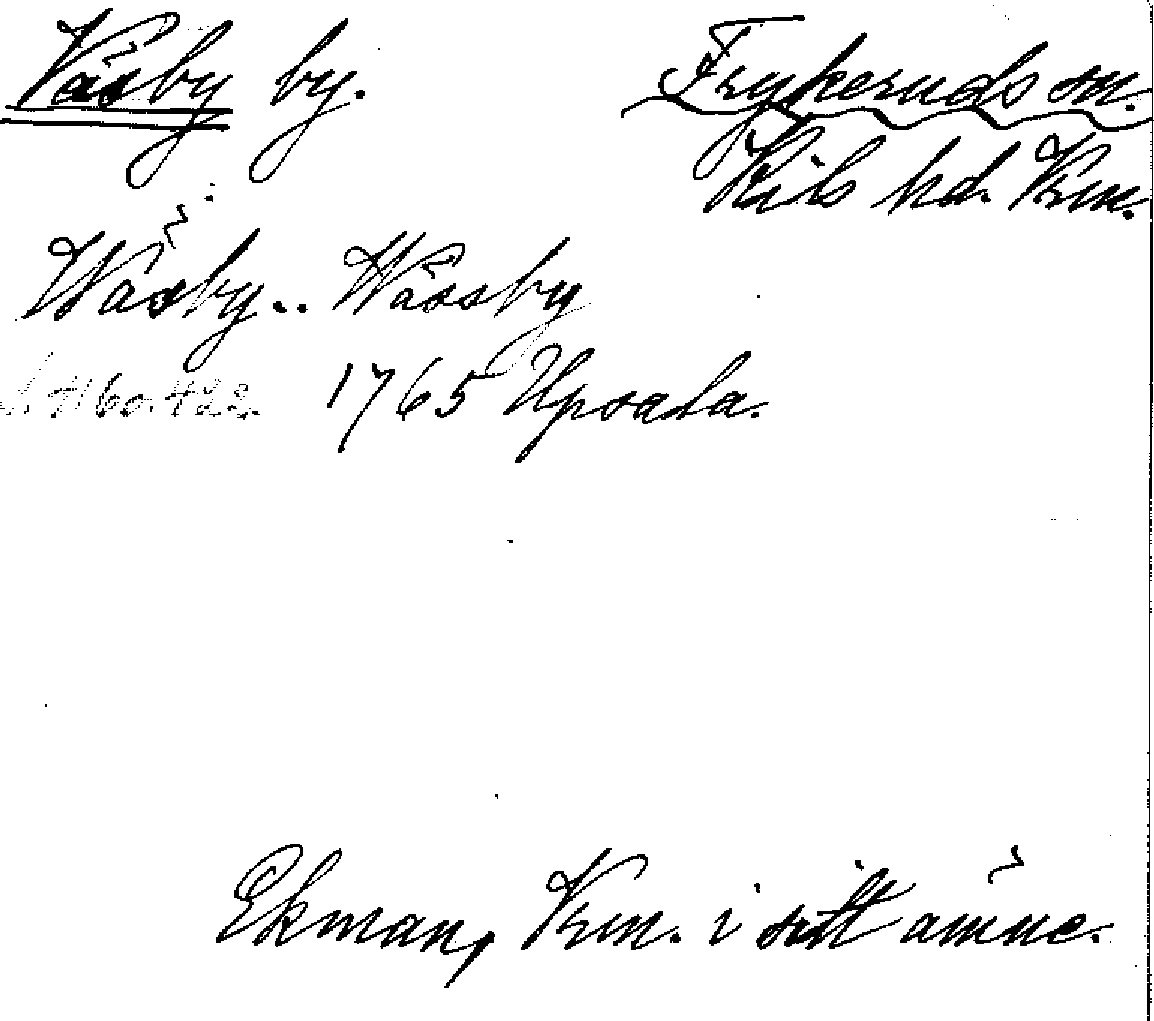 Väsby by. Frykeruds sn.
Kils hd. Vrm.
Wäsby.. Wässby
1765 Upsala.
Ekman, Vrm. i sitt ämne.